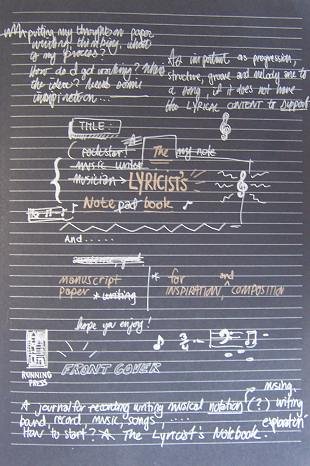 putting my thoughts on paper
writing, thinking, what
is my process?
How do I get writing? Where
the ideas? need some
inspiration...
As important as progression,
structure, groove and melody are to
a song, if it does not have
the LYRICAL CONTENT to support
TITLE:
rockstar! The my note
music writer
musician LYRICIST'S
Note pad book
And.....
manuscript
paper * writing
* for and
INSPIRATION, COMPOSITION
hope you enjoy!
3/4
RUNNING
PRESS
FRONT COVER
musing,
A journal for recording writing musical notation (?) writing
band, record, music, songs ..... exploration
How to start? A The Lyricist's Notebook.